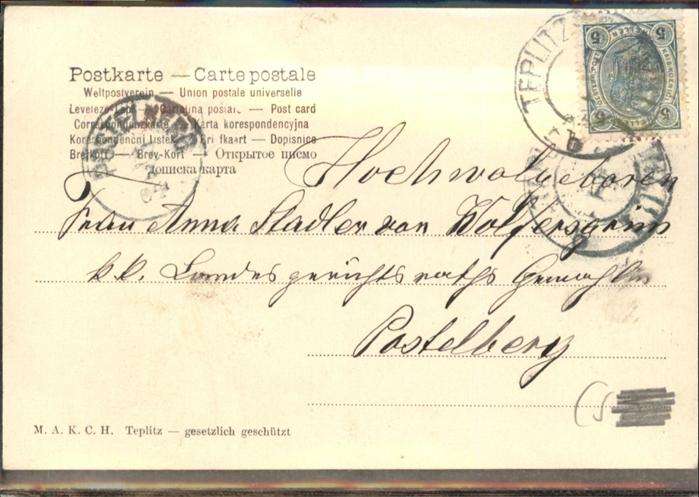 Postkarte — Carte postale
Weltpostverein — Union postale universelle
— Post card
Karta korespondencyjna
Korespondenční lístek — — Dopisnice
Brefkort — Brev-Kort — Открытое письмо
дописна карта
TEPLITZ
5 5
Hochwolgeboren
Frau Anna Stadler von Wolfersgrün
k.k. Landesgerichtsraths Gemahlin
Postelberg
M. A. K. C. H. Teplitz — gesetzlich geschützt